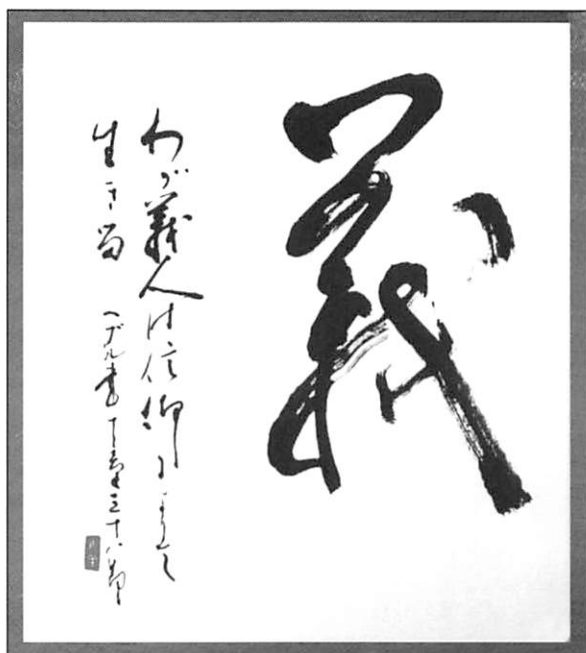 義
わが義人は信仰によって
生きる
ヘブル書十章三十八節